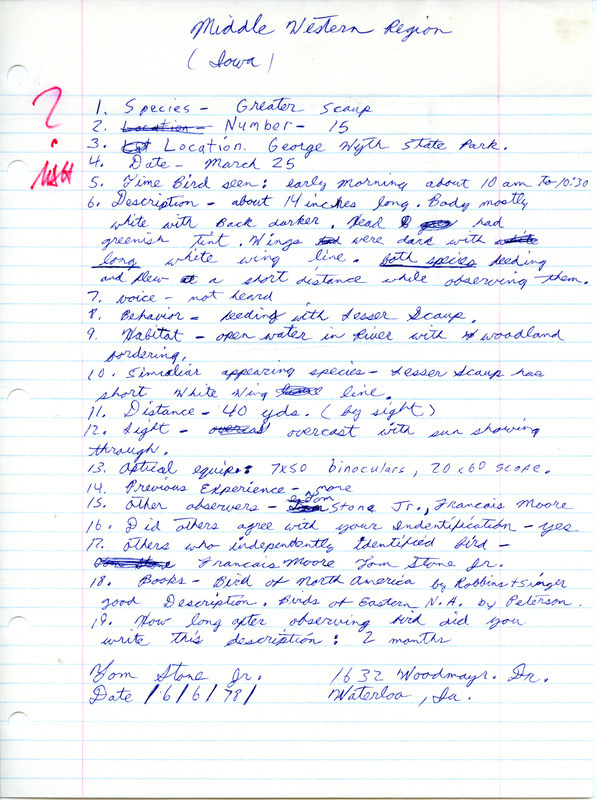 Middle Western Region
(Iowa)
?
1. Species - Greater Scaup
2. Location - Number - 15
3. Location. George Wyth State Park.
4. Date - March 25
5. Time Bird seen: early morning about 10 am to 10:30
6. Description - about 14 inches long. Body mostly
white with Back darker. Head had
greenish tint. Wings were dark with white
long white wing line. both species feeding
and flew a short distance while observing them.
7. voice - not heard
8. Behavior - feeding with Lesser Scaup.
9. Habitat - open water in River with woodland
bordering.
10. Similiar appearing species - Lesser Scaup has
short White Wing line.
11. Distance - 40 yds. (by sight)
12. Light - overcast overcast with sun showing
through.
13. Optical equip: 7x50 binoculars, 20x60 scope.
14. Previous Experience - none
15. Other observers - Tom Stone Jr., Francais Moore
16. Did others agree with your Indentification - yes
17. Others who independently identified Bird -
Tom Stone Francais Moore Tom Stone Jr.
18. Books - Bird of North America by Robbins + Singer
good Description. Birds of Eastern N.A. by Peterson.
19. How long after observing bird did you
write this description: 2 months
Tom Stone Jr. 1632 Woodmayr. Dr.
Date /6/6/78/ Waterloo, Ia.